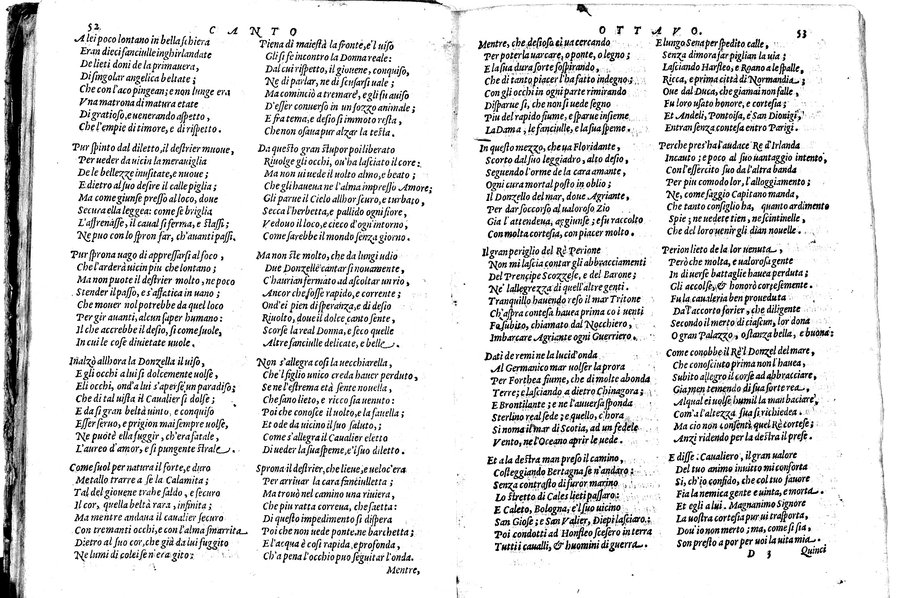 52
CANTO
A lei poco lontano in bella schiera
Eran dieci fanciulle inghirlandate
De lieti doni de la primauera,
Di singolar angelica beltate;
Che con l'aco pingean; e non lunge era
Vna matrona di matura etate
Di gratioso, e uenerando aspetto,
Che l'empie di timore, e di rispetto.
Pur spinto dal diletto, il destrier muoue,
Per ueder da uicin la merauiglia
De le bellezze inusitate, e nuoue;
E dietro al suo desire il calle piglia;
Ma come giunse presso al loco, doue
Secura ella leggea: come se briglia
L'affrenasse, il caual si ferma, e stassi;
Ne puo con lo spron far, ch'auanti passi.
Pur sprona uago di appressarsi al foco,
Che l'arderà uicin piu che lontano;
Ma non puote il destrier molto, ne poco
Stender il passo, e s'affatica in uano;
Che mouer nol potrebbe da quel loco
Per girar quanti, alcun saper humano:
Il che accrebbe il desio, si come suole,
In cui le cose diuietate uuole.
Inalzò allhora la Donzella il uiso,
E gli occhi a lui sì dolcemente uolse,
Eli occhi, ond'a lui s'aperse un paradiso;
Che di tal uista il Caualier si dolse;
E da sì gran beltà uinto, e conquiso
Esser seruo, e prigion mai sempre uolse,
Ne puotè ella fuggir, ch'era fatale,
L'aureo d'amor, e sì pungente strale.
Come suol per natura il forte, e duro
Metallo trarre a se la Calamita;
Tal del giouene trahe saldo, e securo
Il cor, quella beltà rara, infinita;
Ma mentre andaua il caualier securo
Con tremanti occhi, e con l'alma smarrita
Dietro al suo cor, che già da lui fuggito
Ne lumi di colei se n'era gito:
Piena di maiestà la fronte, e'l uiso
Gli si fe incontro la Donna reale:
Dal cui rispetto, il giouene, conquiso,
Ne di parlar, ne di scusarsi uale;
Ma cominciò a tremare, e gli fu auiso
D'esser conuerso in un sozzo animale;
E fra tema, e desio si immoto resta,
Che non osa pur alzar la testa.
Da questo gran stupor poi liberato
Riuolge gli occhi, ou'ha lasciato il core:
Ma non ui uede il uolto almo, e beato;
Che gli haueua ne l'alma impresso Amore;
Gli parue il Cielo allhor scuro, e turbato,
Secca l'herbetta, e pallido ogni fiore,
Vedouo il loco, e cieco d'ogni intorno,
Come sarebbe il mondo senza giorno.
Ma non stè molto, che da lungi udio
Due Donzelle cantar sì nouamente,
C'haurian fermato ad ascoltar un rio,
Ancor che fosse rapido, e corrente;
Ond'ei pien di speranza, e di desio
Riuolto, doue il dolce canto sente,
Scorse la real Donna, e seco quelle
Altre fanciulle delicate, e belle.
Non s'allegra così la uecchiarella,
Che'l figlio unico creda hauer perduto,
Se ne l'estrema età sente nouella,
Che sano lieto, e ricco sia uenuto:
Poi che conosce il uolto, e la fauella;
Et ode da uicino il suo saluto,;
Come s'allegra il Caualier eletto
Di ueder la sua speme, e'l suo diletto.
Sprona il destrier, che lieue, e ueloc'era
Per arriuar la cara fanciulletta;
Ma trouò nel camino una riuiera,
Che piu ratta correua, che saetta:
Di questo impedimento si dispera
Poi che non uede ponte, ne barchetta;
E l'acqua è così rapida, e profonda,
Ch'a pena l'occhio può seguitar l'onda.
Mentre,
OTTAVO.
53
Mentre, che desiosa ei ua cercando
Per poterla uarcare, o ponte, o legno;
E la sua dura sorte sospirando,
Che di tanto piacer l'ha fatto indegno;
Con gli occhi in ogni parte rimirando
Disparue sì, che non si uede segno
Piu del rapido fiume, e sparue insieme
La Dama, le fanciulle, e la sua speme.
In questo mezzo, che ua Floridante,
Scorto dal suo leggiadro, alto desio,
Seguendo l'orme de la cara amante,
Ogni cura mortal posto in oblio;
Il Donzello del mar, doue Agriante,
Per dar soccorso al ualoroso Zio
Gia l'attendeua, aggiunse; e fu raccolto
Con molta cortesia, con piacer molto.
Il gran periglio del Rè Perione
Non mi lascia contar gli abbracciamenti
Del Prencipe Scozzese, e del Barone;
Ne l'allegrezza di quell'altre genti.
Tranquillo hauendo reso il mar Tritone
Ch'aspra contesa hauea prima co i uenti
Fa subito, chiamato dal Nocchiero,
Imbarcare Agriante ogni Guerriero.
Dati de remi ne la lucid'onda
Al Germanico mar uolser la prora
Per Forthea fiume, che di molte abonda
Terre; e lasciando a dietro Chinagora;
E Brontilante; e ne l'auuersa sponda
Sterlino real sede; e quello, c'hora
Si noma il mar di Scotia, ad un fedele
Vento, ne l'Oceano aprir le uede.
Et a la destra man preso il camino,
Costeggiando Bertagna se n'andaro;
Senza contrasto di furor marino
Lo stretto di Cales lieti passaro:
E Caleto, Bologna, e'l suo uicino
San Giosè; e San Valier, Diepi lasciaro;
Poi condotti ad Honfleo scesero in terra
Tutti i caualli, & huomini di guerra.
E lungo Sena per spedito calle,
Senza dimora far piglian la uia;
Lasciando Harfleo, e Roano a le spalle,
Ricca, e prima città di Normandia;
Oue dal Duca, che giamai non falle,
Fu loro usato honore, e cortesia;
Et Andeli, Pontoisa, e San Dionigi,
Entran senza contesa entro Parigi.
Perche pres'ha l'audace Rè d'Irlanda
Incauto; e poco al suo uantaggio intento,
Con l'essercito suo da l'altra banda
Per piu comodo lor, l'alloggiamento;
Ne, come saggio Capitano manda,
Che tanto consiglio ha, quanto ardimento
Spie; ne uedete tien, ne sentinelle,
Che del loro uenir gli dian nouelle.
Perion lieto de la lor uenuta,
Però che molta, e ualorosa gente
In diuerse battaglie hauea perduta;
Gli accolse, & honorò cortesemente.
Fu la caualeria ben proueduta
Da l'accorto forier, che diligente
Secondo il merto di ciascun, lor dona
O gran Palazzo, o stanza bella, e buona:
Come conobbe il Rè'l Donzel del mare,
Che conosciuto prima non l'hauea,
Subito allegro il corse ad abbracciare,
Gia non temendo di sua sorte rea,
Al qual ei uolse humil la man baciare,
Com'a l'altezza sua si richiedea.
Ma cio non consentì quel Rè cortese;
Anzi ridendo per la destra il prese.
E disse: Caualiero, il gran ualore
Del tuo animo inuitto mi conforta
Sì, ch'io confido, che col tuo fauore
Fia la nemica gente e uinta, e morta.
Et egli a lui. Magnanimo Signore
La uostra cortesia pur ui trasporta,
Dou'io non merto; ma, come si sia,
Son presto a por per uoi la uita mia.
D 3
Quinci